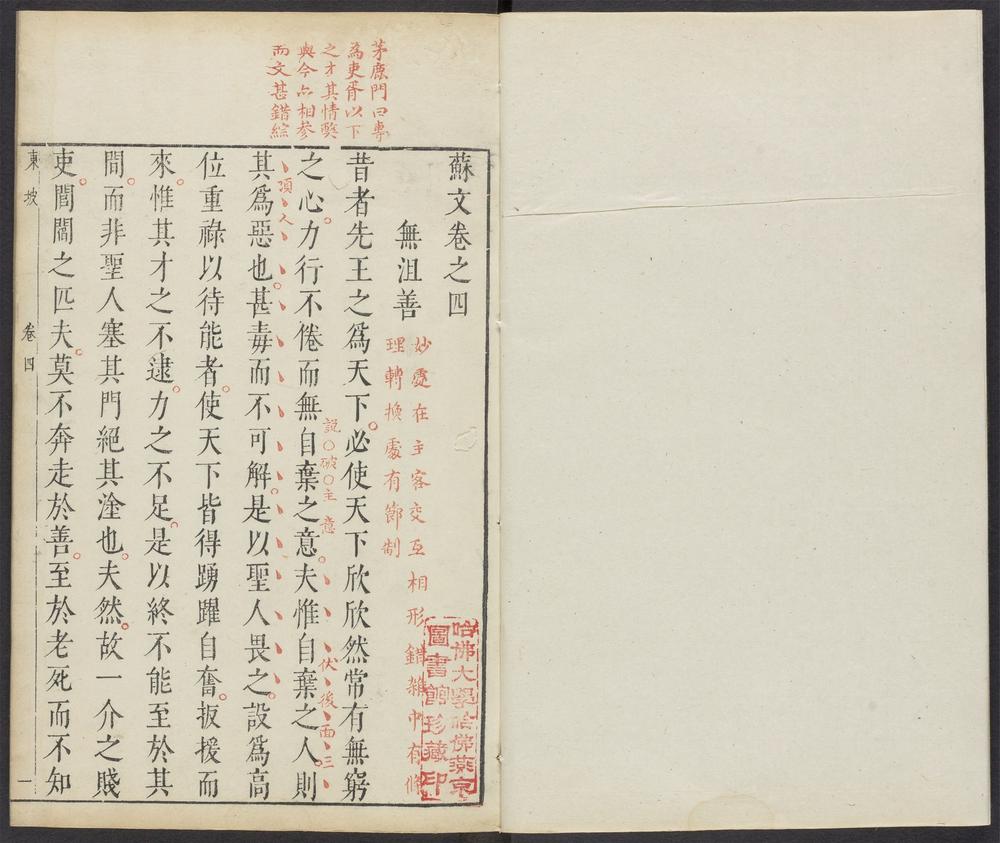 茅鹿門曰專
為吏胥以下
之才其情獘
與今亦相參
而文甚錯綜
蘇文卷之四
無沮善
妙處在主客交互相形錯雜中有條
理轉換處有節制
昔者先王之爲天下必使天下欣欣然常有無窮
之心力行不倦而無自棄之意夫惟自棄之人則
說破主意
伏後面三
其爲惡也甚毒而不可解是以聖人畏之設爲高
項人
位重祿以待能者使天下皆得踴躍自奮扳援而
來惟其才之不逮力之不足是以終不能至於其
間而非聖人塞其門絕其塗也夫然故一介之賤
吏閭閻之匹夫莫不奔走於善至於老死而不知
東坡
卷四
一
哈佛大學哈佛燕京
圖書館珍藏印